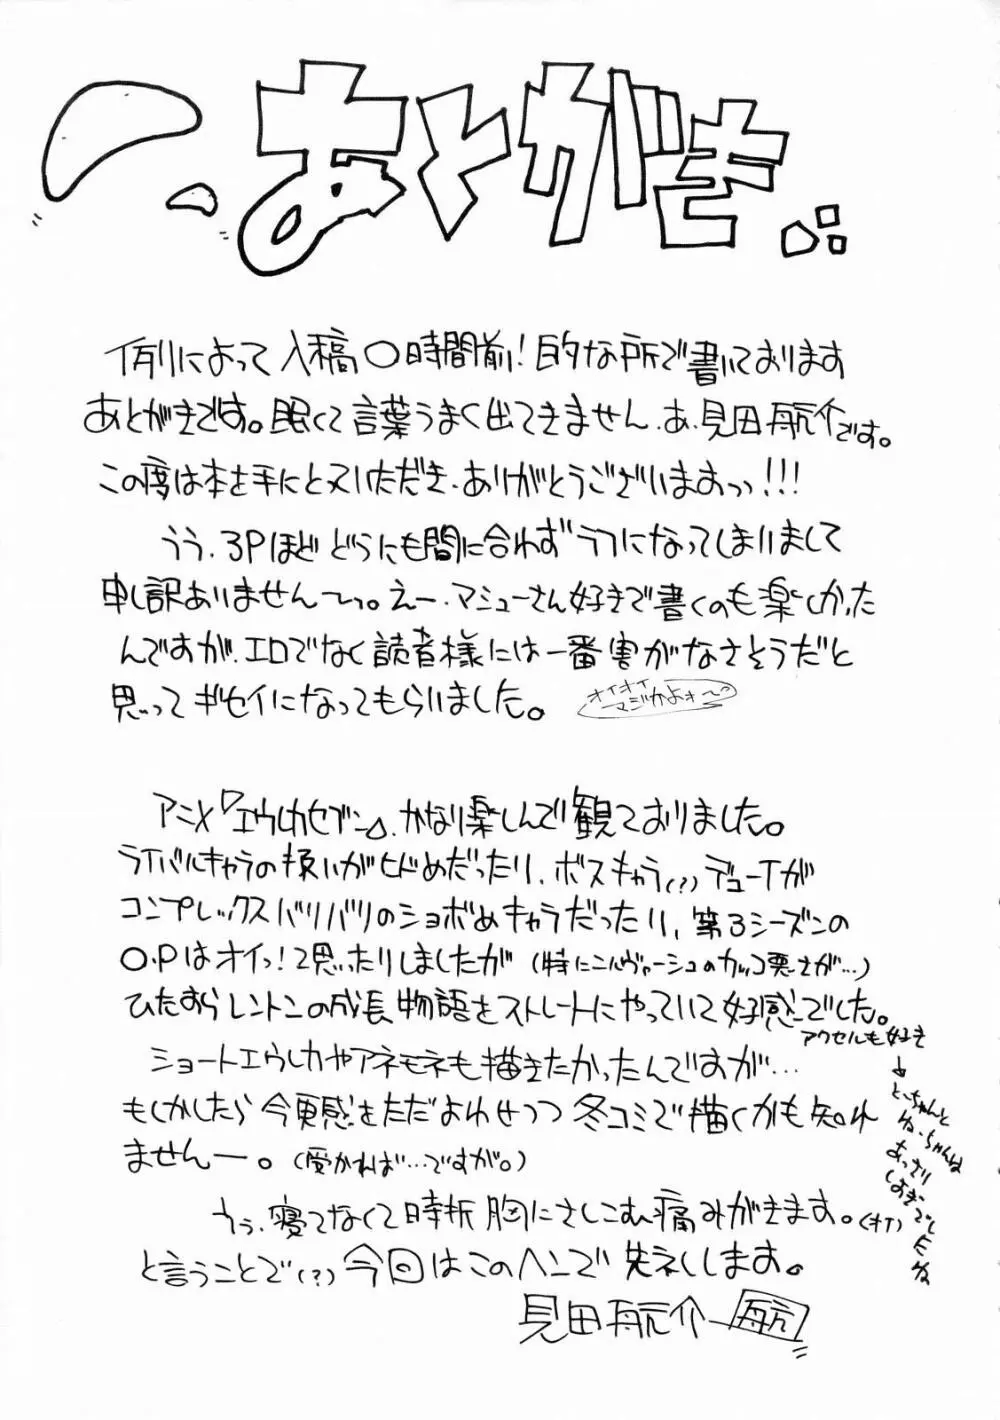 あとがき
例によって入稿〇時間前!的な所で書いております
あとがきです。眠くて言葉うまく出てきません、あ、見田航介です。
この度は本を手にとっていただき、ありがとうございまおっっ!!!
うう、3Pほどどうにも間に合わずラフになってしまいまして
申し訳ありません〜っ。えー、マシューさん好きで書くのも楽しかった
んですが、エロでなく読者様には一番害がなさそうだと
思ってギセイになってもらいました。
オイオイ
マジかよォ〜
アニメ『エウレカセブン』、かなり楽しんで観ておりました。
ライバルキャラの扱いがヒドめだったり、ボスキャラ(?)デューイが
コンプレックスバリバリのショボめキャラだったり、第3シーズンの
O.Pはオイっ!と思ったりしましたが(特にニルヴァーシュのカッコ悪さが…)
ひたすらレントンの成長物語をストレートにやっていて好感でした。
アクセルも好き
ショートエウレカやアネモネも描きたかったんですが…
もしかしたら今更感をただよわせつつ冬コミで描くかも知れ
ませんー。(受かれば…ですが。)
とーちゃんと
ねーちゃんは
あっさり
しすぎ
うぅ、寝てなくて時折胸にさしこむ痛みがきます。(オイ)
と言うことで(?)今回はこのヘンで失礼します。
見田航介
航